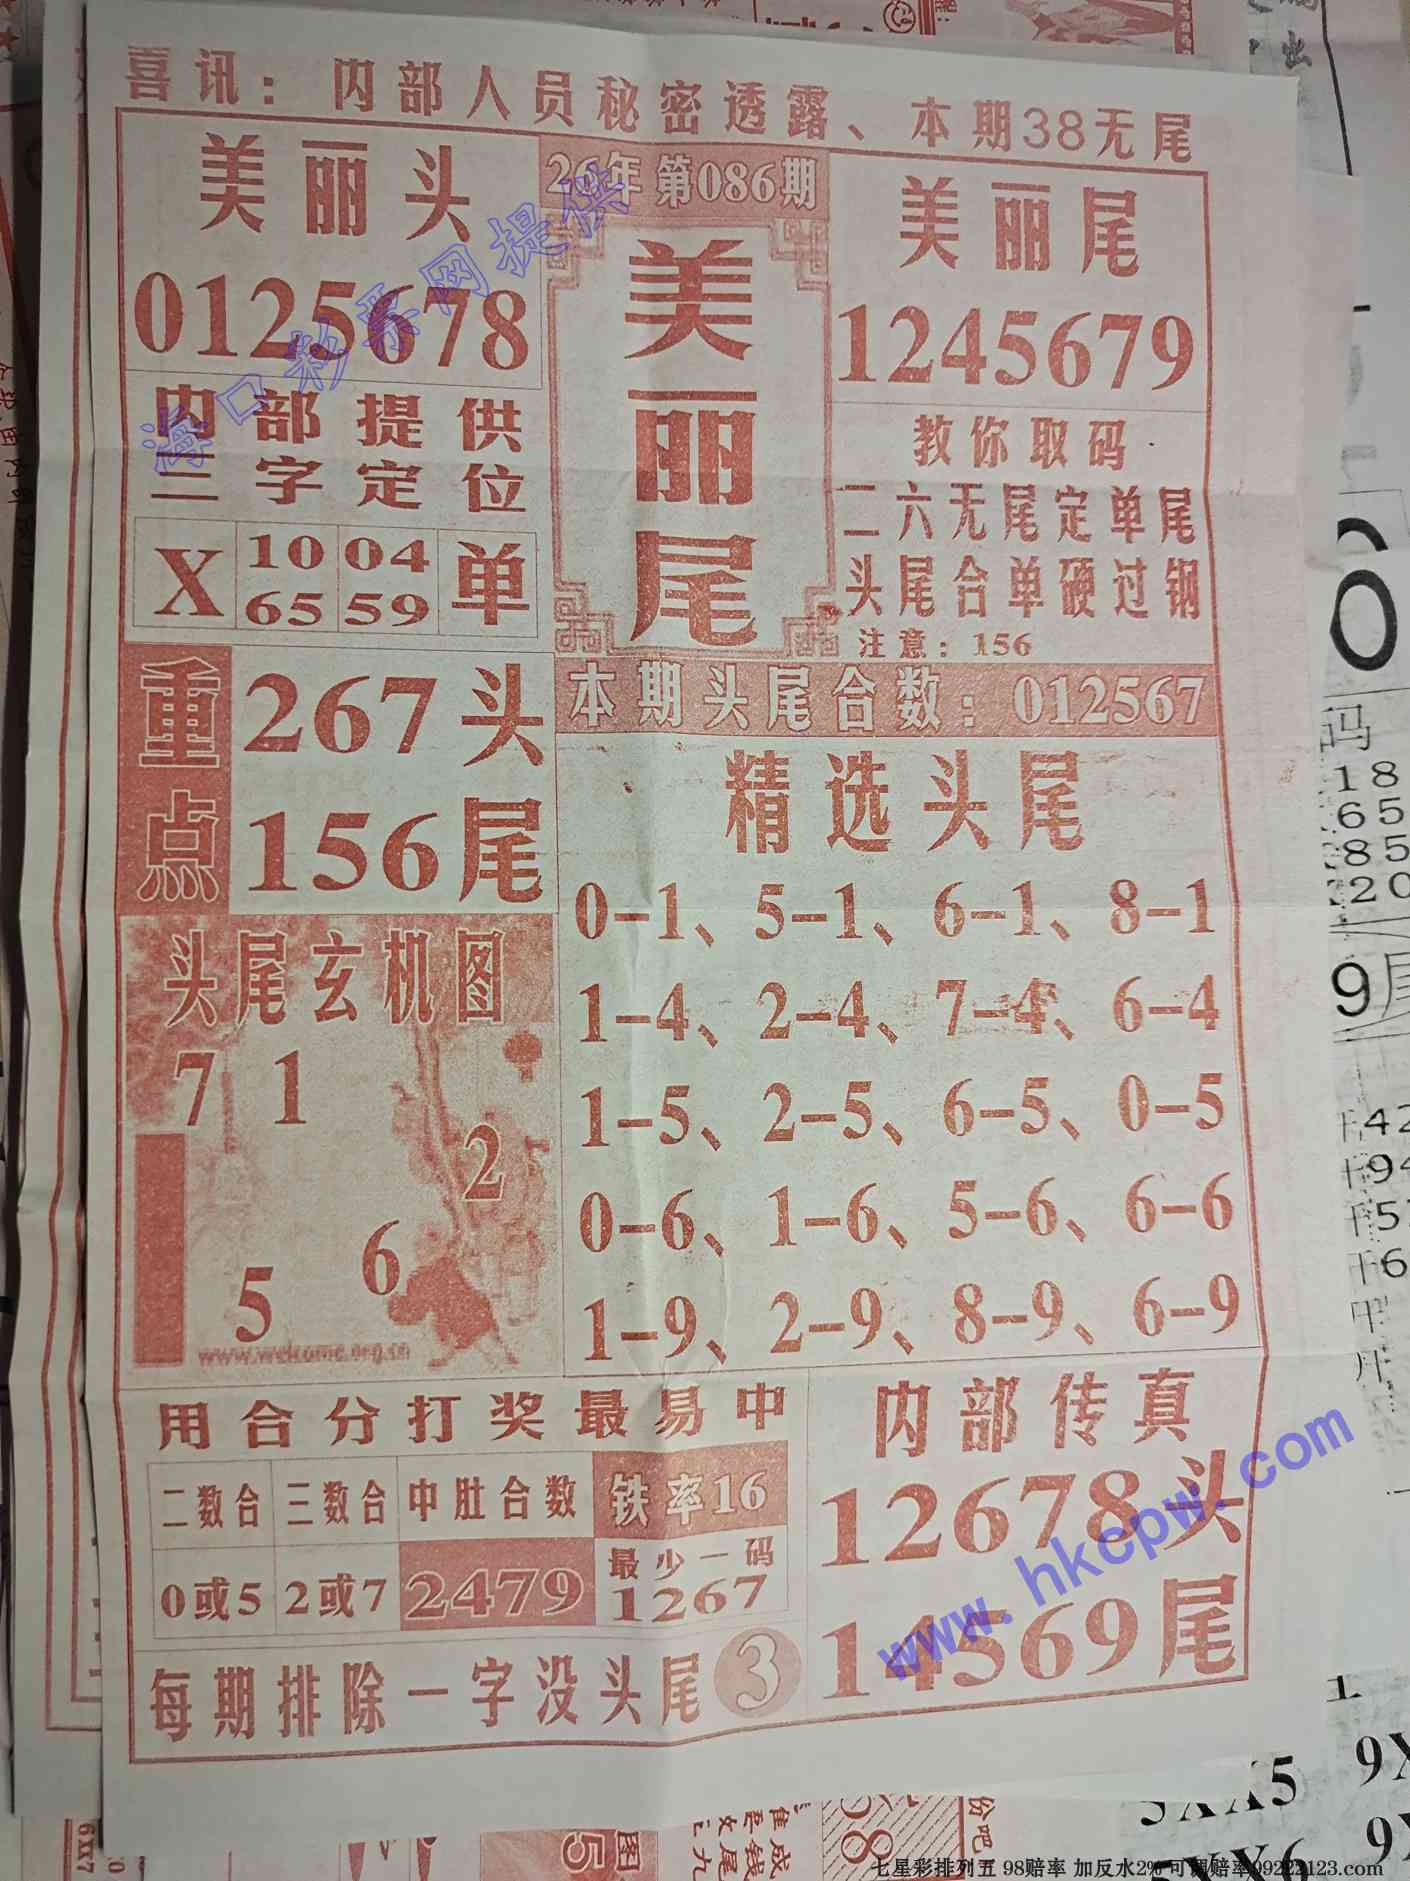 喜讯：内部人员秘密透露、本期38无尾
美丽头
0125678
26年第086期
美丽尾
美丽尾
1245679
内部提供
三字定位
X 10 04 单
65 59
教你取码
二六无尾定单尾
头尾合单硬过钢
注意：156
重点
267头
156尾
本期头尾合数：012567
精选头尾
0-1、5-1、6-1、8-1
1-4、2-4、7-4、6-4
1-5、2-5、6-5、0-5
0-6、1-6、5-6、6-6
1-9、2-9、8-9、6-9
头尾玄机图
7 1
2
6
5
www.welcome.org.cn
用合分打奖最易中
二数合 三数合 中肚合数 铁率16
0或5 2或7 2479 最少一码
1267
内部传真
12678头
14569尾
每期排除一字没头尾 3
海口彩票网提供
www.hkcpw.com
七星彩排列五 98赔率 加反水2% 可调赔率99222123.com